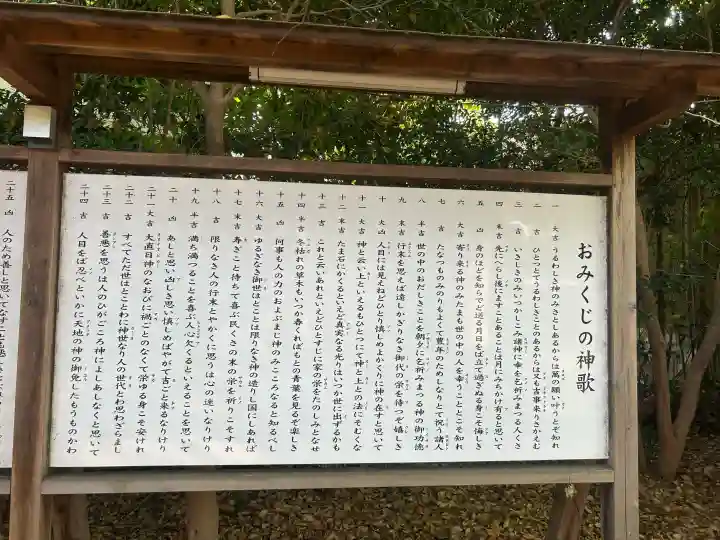 おみくじの神歌
一 大吉 うるわしき神のみさとしあるからは萬の願い叶うとぞ知れ
二 吉 ひとつとてうるわしきことのあるからは又も吉事来りさかえむ
三 吉 いさしきのみいつかしこみ諸神に幸を乞祈みまつる人くさ
四 末吉 先にへらし後にますことあることは月にみちかけ有ると思いて
五 凶 身のほどを知らでど送る月日をば立て過ぎぬる身こそ悔しき
六 大吉 寄り来る神のみたまも世の中の人を幸うこととこそ知れ
七 吉 たなつものみのりもよくて豊年のためしなりとて祝う諸人
八 半吉 世の中のおだしきことを朝夕に乞祈みまつる神の御功徳
九 末吉 行末を思えば遠しかぎりなき御代の栄を待つぞ嬉しき
十 大凶 人目には見えねどひとり慎しめよかくりに神の在すと思いて
十一 大吉 神と云い上といえるもひとつにて神と上との法にそむくな
十二 末吉 たま石にかくるといえど真実なる光りはいつか世に出ずるかも
十三 吉 これと云いあれといえどひとすじに家の栄をたのしみとなせ
十四 半吉 冬枯れの草木もいつか春くればもとの青葉を見るぞ楽しき
十五 凶 何事も人の力のおよぶまじ神のみこころなると知るべし
十六 大吉 ゆるぎなき御世はとことは限りなき神の造りし国にしあれば
十七 末吉 寿ぎこと待ちて喜ぶ民くさの末の栄を祈りこそすれ
十八 吉 限りなき人の行末とやかくに思うは心の迷いなりけり
十九 半吉 満ち満つることを喜ぶ人心欠くるといえることを思いて
二十 凶 あしと思い凶しき思い慎しめばやがて吉こと来るなりけり
二十一 大吉 大直日神のなおびに禍ごとのなくて栄ゆる身こそ安けれ
二十二 吉 すべてただ世はとことわに神世なり人の世代とわ思わざらまし
二十三 吉 善悪を思うは人のひがごころ神によしあしなくと思いて
二十四 吉 人目をば忍べといかに天地の神の御免したもうものかわ
二十五 凶 人のため善しと思いて